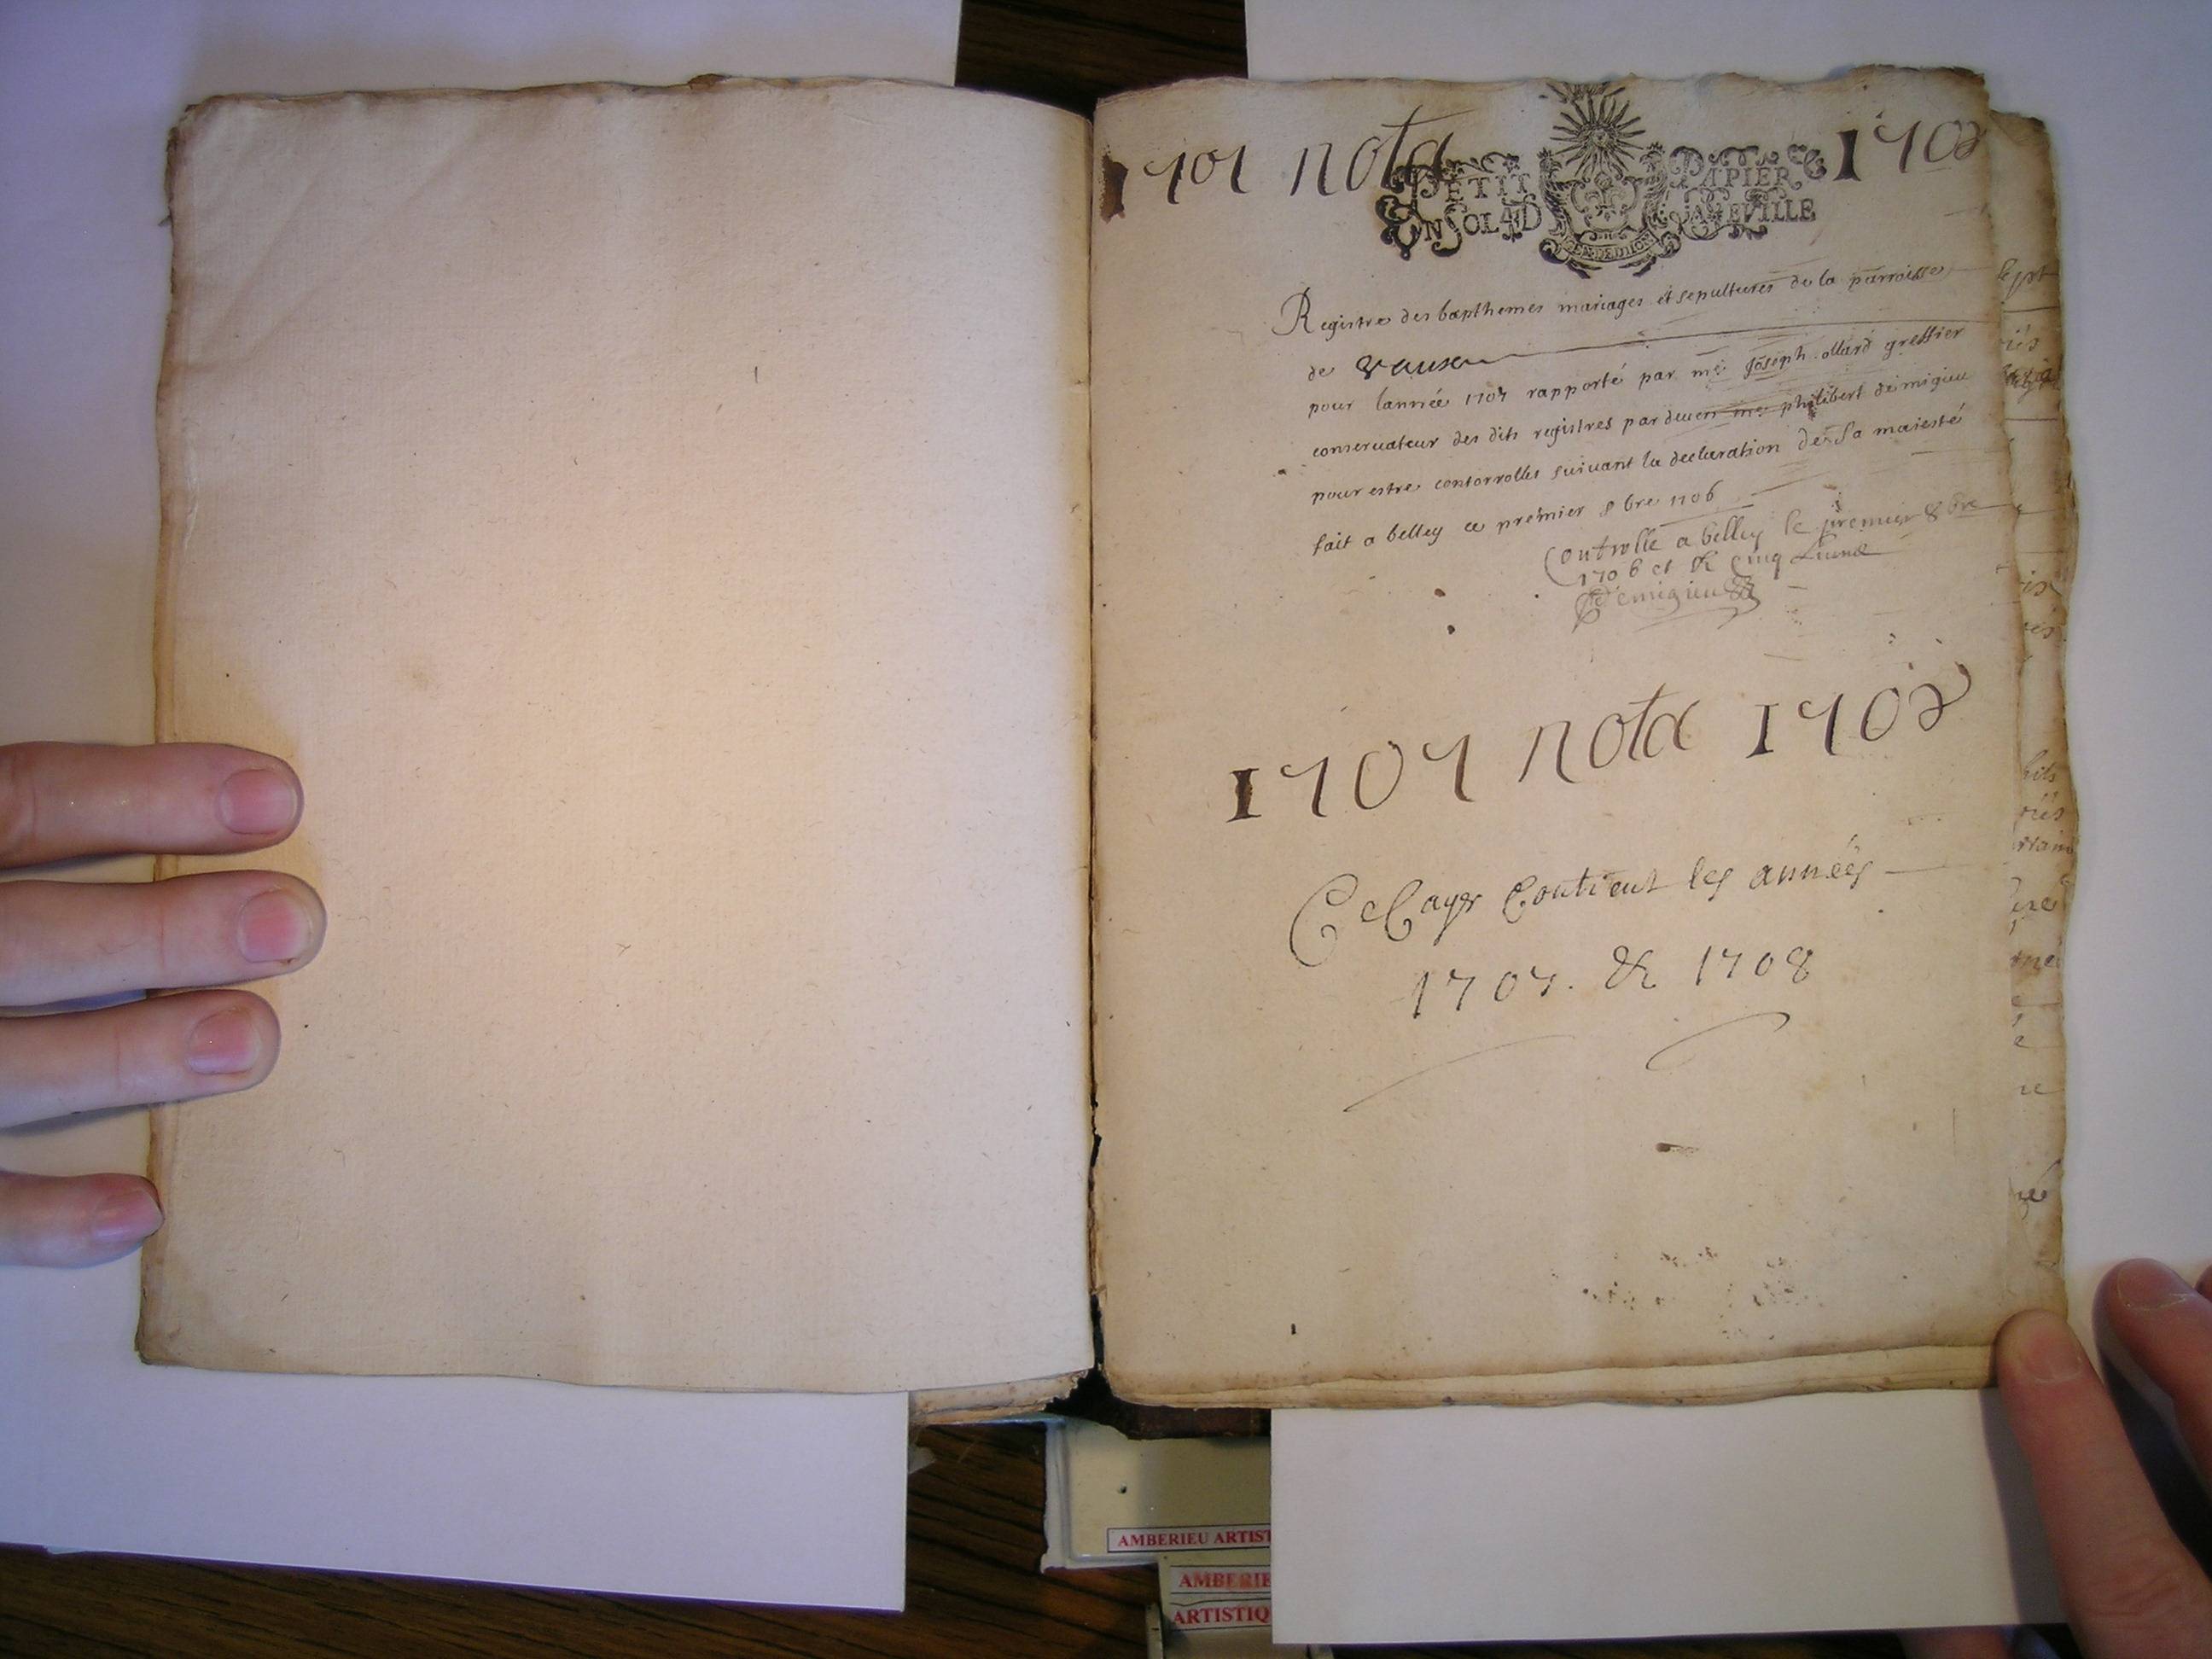 1707 nota 1708
PETIT PAPIER
UN SOL 4 D LA FEVILLE
GEN. DE DIION
Registre des bapthemes mariages et sepultures de la parroisse
de Vaux
pour lannée 1707 rapporté par me Joseph ollard greffier
conseruateur des dits registres par deuen me philibert demigieu
pour estre contorrollés suivant la declaration de Sa maiesté
fait a belley ce premier 8bre 1706
Controllé a belley le premier 8bre
1706 et R cinq
Demigieu
1707 nota 1708
Ce Cayer Contient les années
1707. & 1708
AMBERIEU ARTIST
AMBERIE
ARTISTIQ